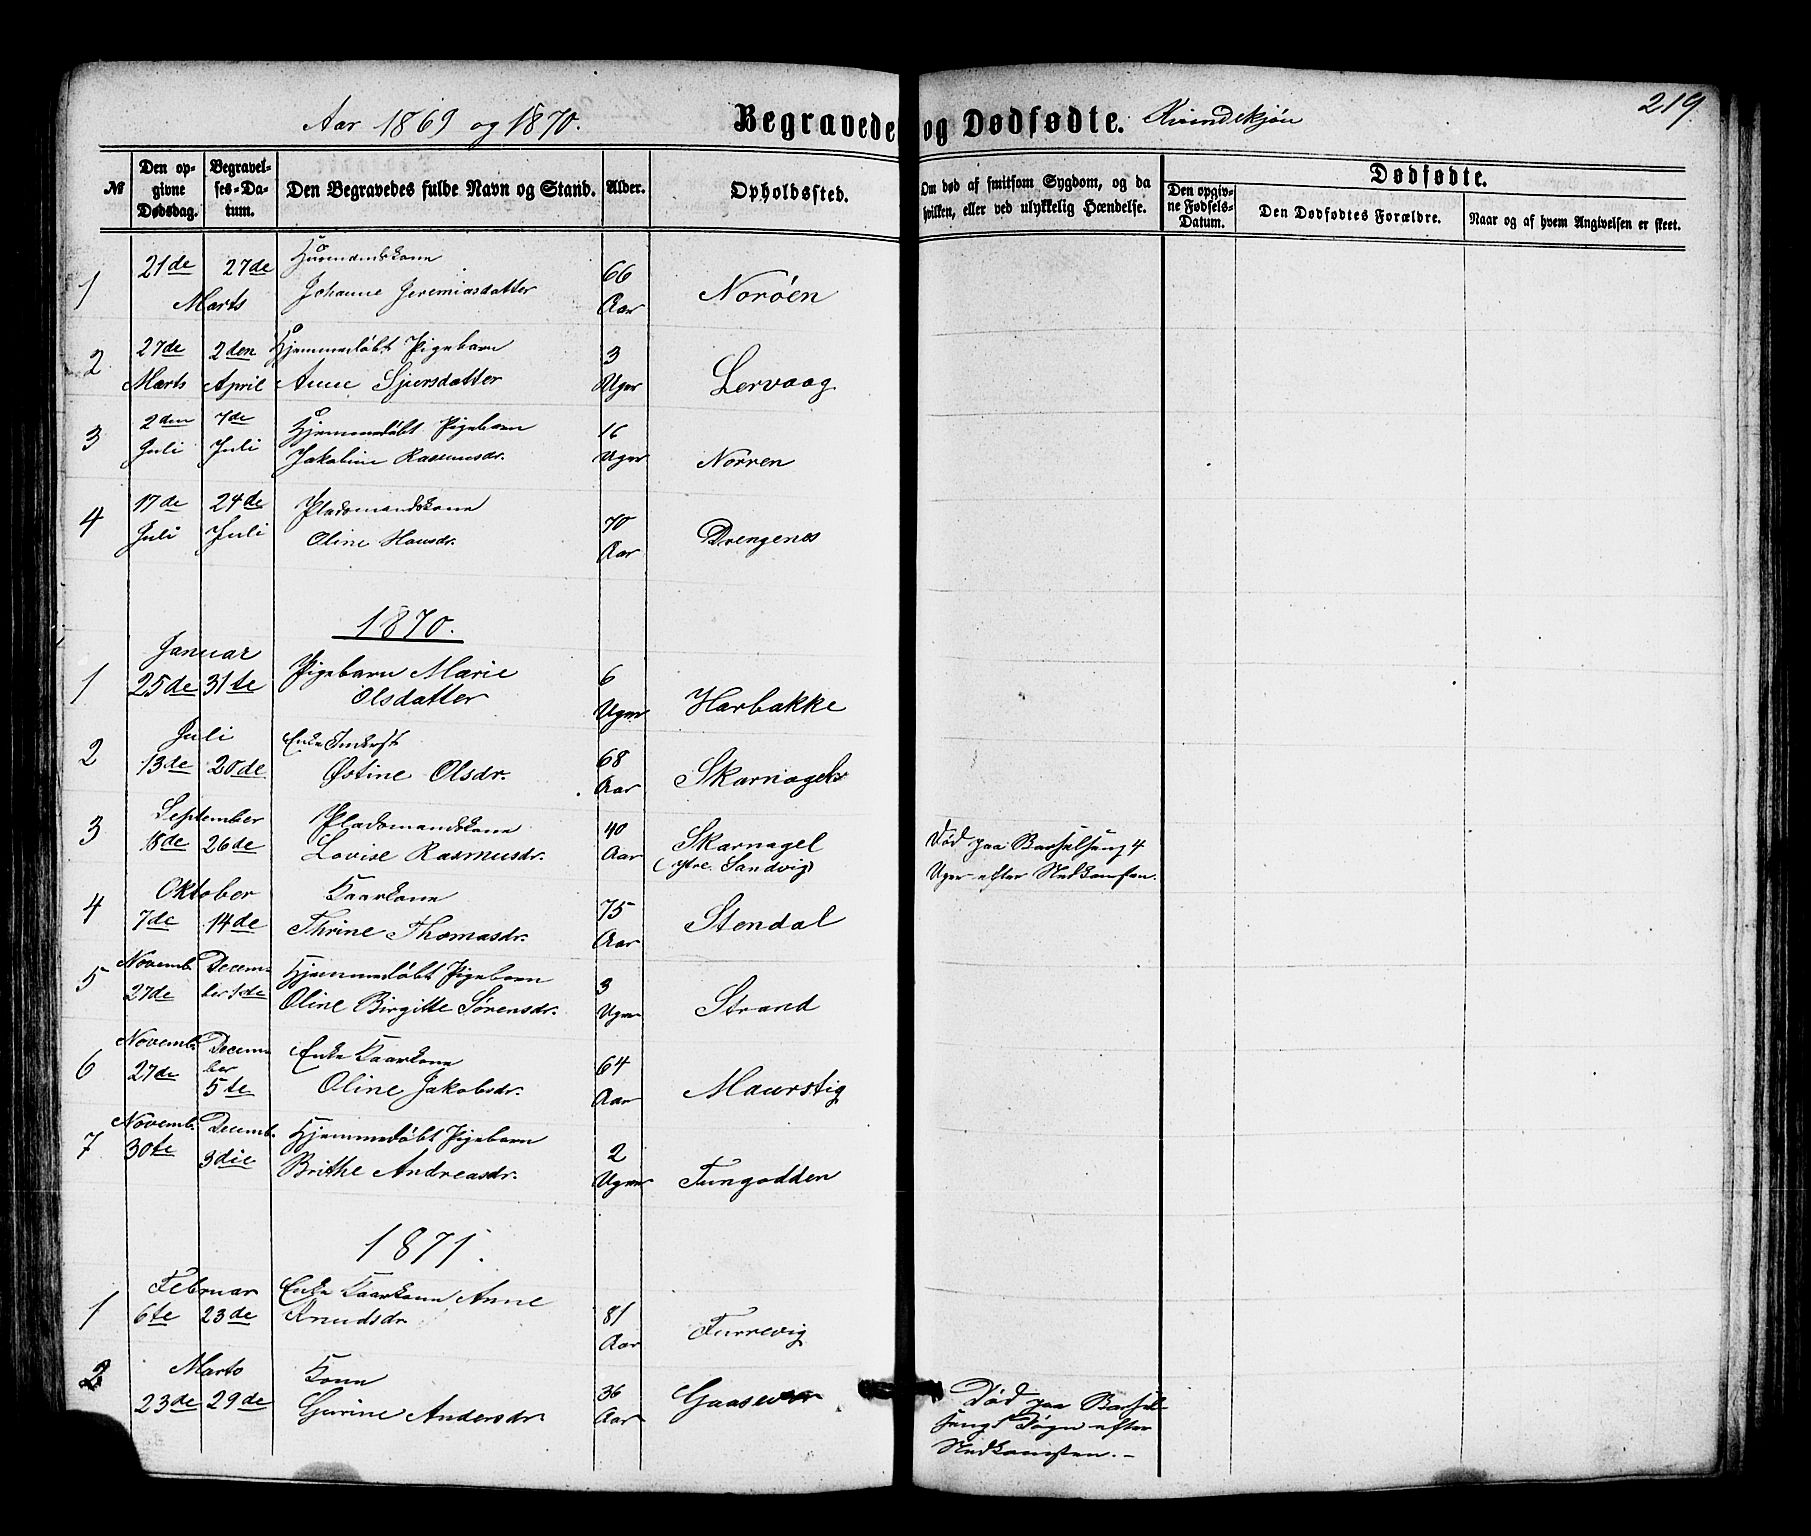 219.
Aar 1869 og 1870.
Begravede og Dødfødte. Kvindekjøn
№
Den opgivne Dødsdag.
Begravelses-Datum.
Den Begravedes fulde Navn og Stand.
Alder.
Opholdssted.
Om død af smitsom Sygdom, og da hvilken, eller ved ulykkelig Hændelse.
Dødfødte.
Den opgivne Fødsels-Datum.
Den Dødfødtes Forældre.
Naar og af hvem Angivelsen er skeet.
1 21de 27de Marts Huusmandskone
Johanne Jeremiasdatter 66 Aar Norøen
2 27de Marts 2den April Hjemmedøbt Pigebarn
Anne Sjursdatter 3 Uger Lervaag
3 2den Juli 7de Juli Hjemmedøbt Pigebarn
Jakobine Rasmusdr. 16 Uger Norren
4 17de Juli 24de Juli Pladsmandskone
Oline Hansdr. 70 Aar Drengenes
1870.
1 Januar 25de 31te Pigebarn Marie
Olsdatter 6 Uger Harbakke
2 Juli 13de 20de Enke
Østine Olsdr. 68 Aar Skarnagel
3 September 18de 26de Pladsmandskone
Lovise Rasmusdr. 40 Aar Skarnagel
(ytre Sandvig)
Død paa Barselseng 4
Uger efter Nedkomsten.
4 Oktober 7de 14de Kaarkone
Thrine Thomasdr. 75 Aar Stendal
5 Novemb. 27de December Hjemmedøbt Pigebarn
Oline Birgitte Sørensdr. 3 Uger Strand
6 Novemb. 27de December 5te Enke Kaarkone
Oline Jakobsdr. 64 Aar Maurstig
7 Novemb. 30te Decemb. 3die Hjemmedøbt Pigebarn
Brithe Andreasdr. 2 Uger Tungodden
1871.
1 Februar 6te 23de Enke Kaarkone Anne
Knudsdr. 81 Aar Furrevig
2 Marts 23de 29de Kone
Gurine Andersdr. 36 Aar Gaasevær
Død paa Barsel-
seng Døgn efter
Nedkomsten.-